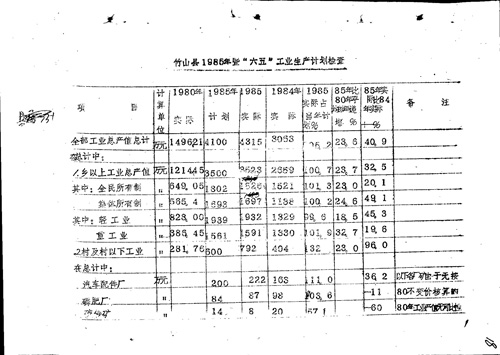 竹山县1985年暨“六五”工业生产计划检查
项 目 计算单位 1980年实际 1985年计划 1985年实际 1984年实际 1985实际占年计划% 85年比80年平均递增% 85年实际比84年实际±% 备注
全部工业总产值总计 万元 1496.21 4100 4315 3063 23.6 40.9
在总计中:
1.乡以上工业总产值 万元 1214.45 3500 3523 2659 100.7 23.7 32.5
其中:全民所有制 〃 649.05 1802 1826 1521 101.3 23.0 20.1
集体所有制 〃 565.4 1698 1697 1138 100.2 24.6 49.1
其中:轻工业 〃 828.00 1939 1932 1329 99.6 18.5 45.3
重工业 〃 386.45 1561 1591 1330 101.9 32.7 19.6
2.村及村以下工业 〃 281.76 600 792 404 132 23.0 96.0
在总计中:
汽车配件厂 万元 200 222 163 111.0 36.2
磷肥厂 〃 84 87 98 103.6 -11 80不变价核算的
矿 〃 14 8 20 57.1 -60